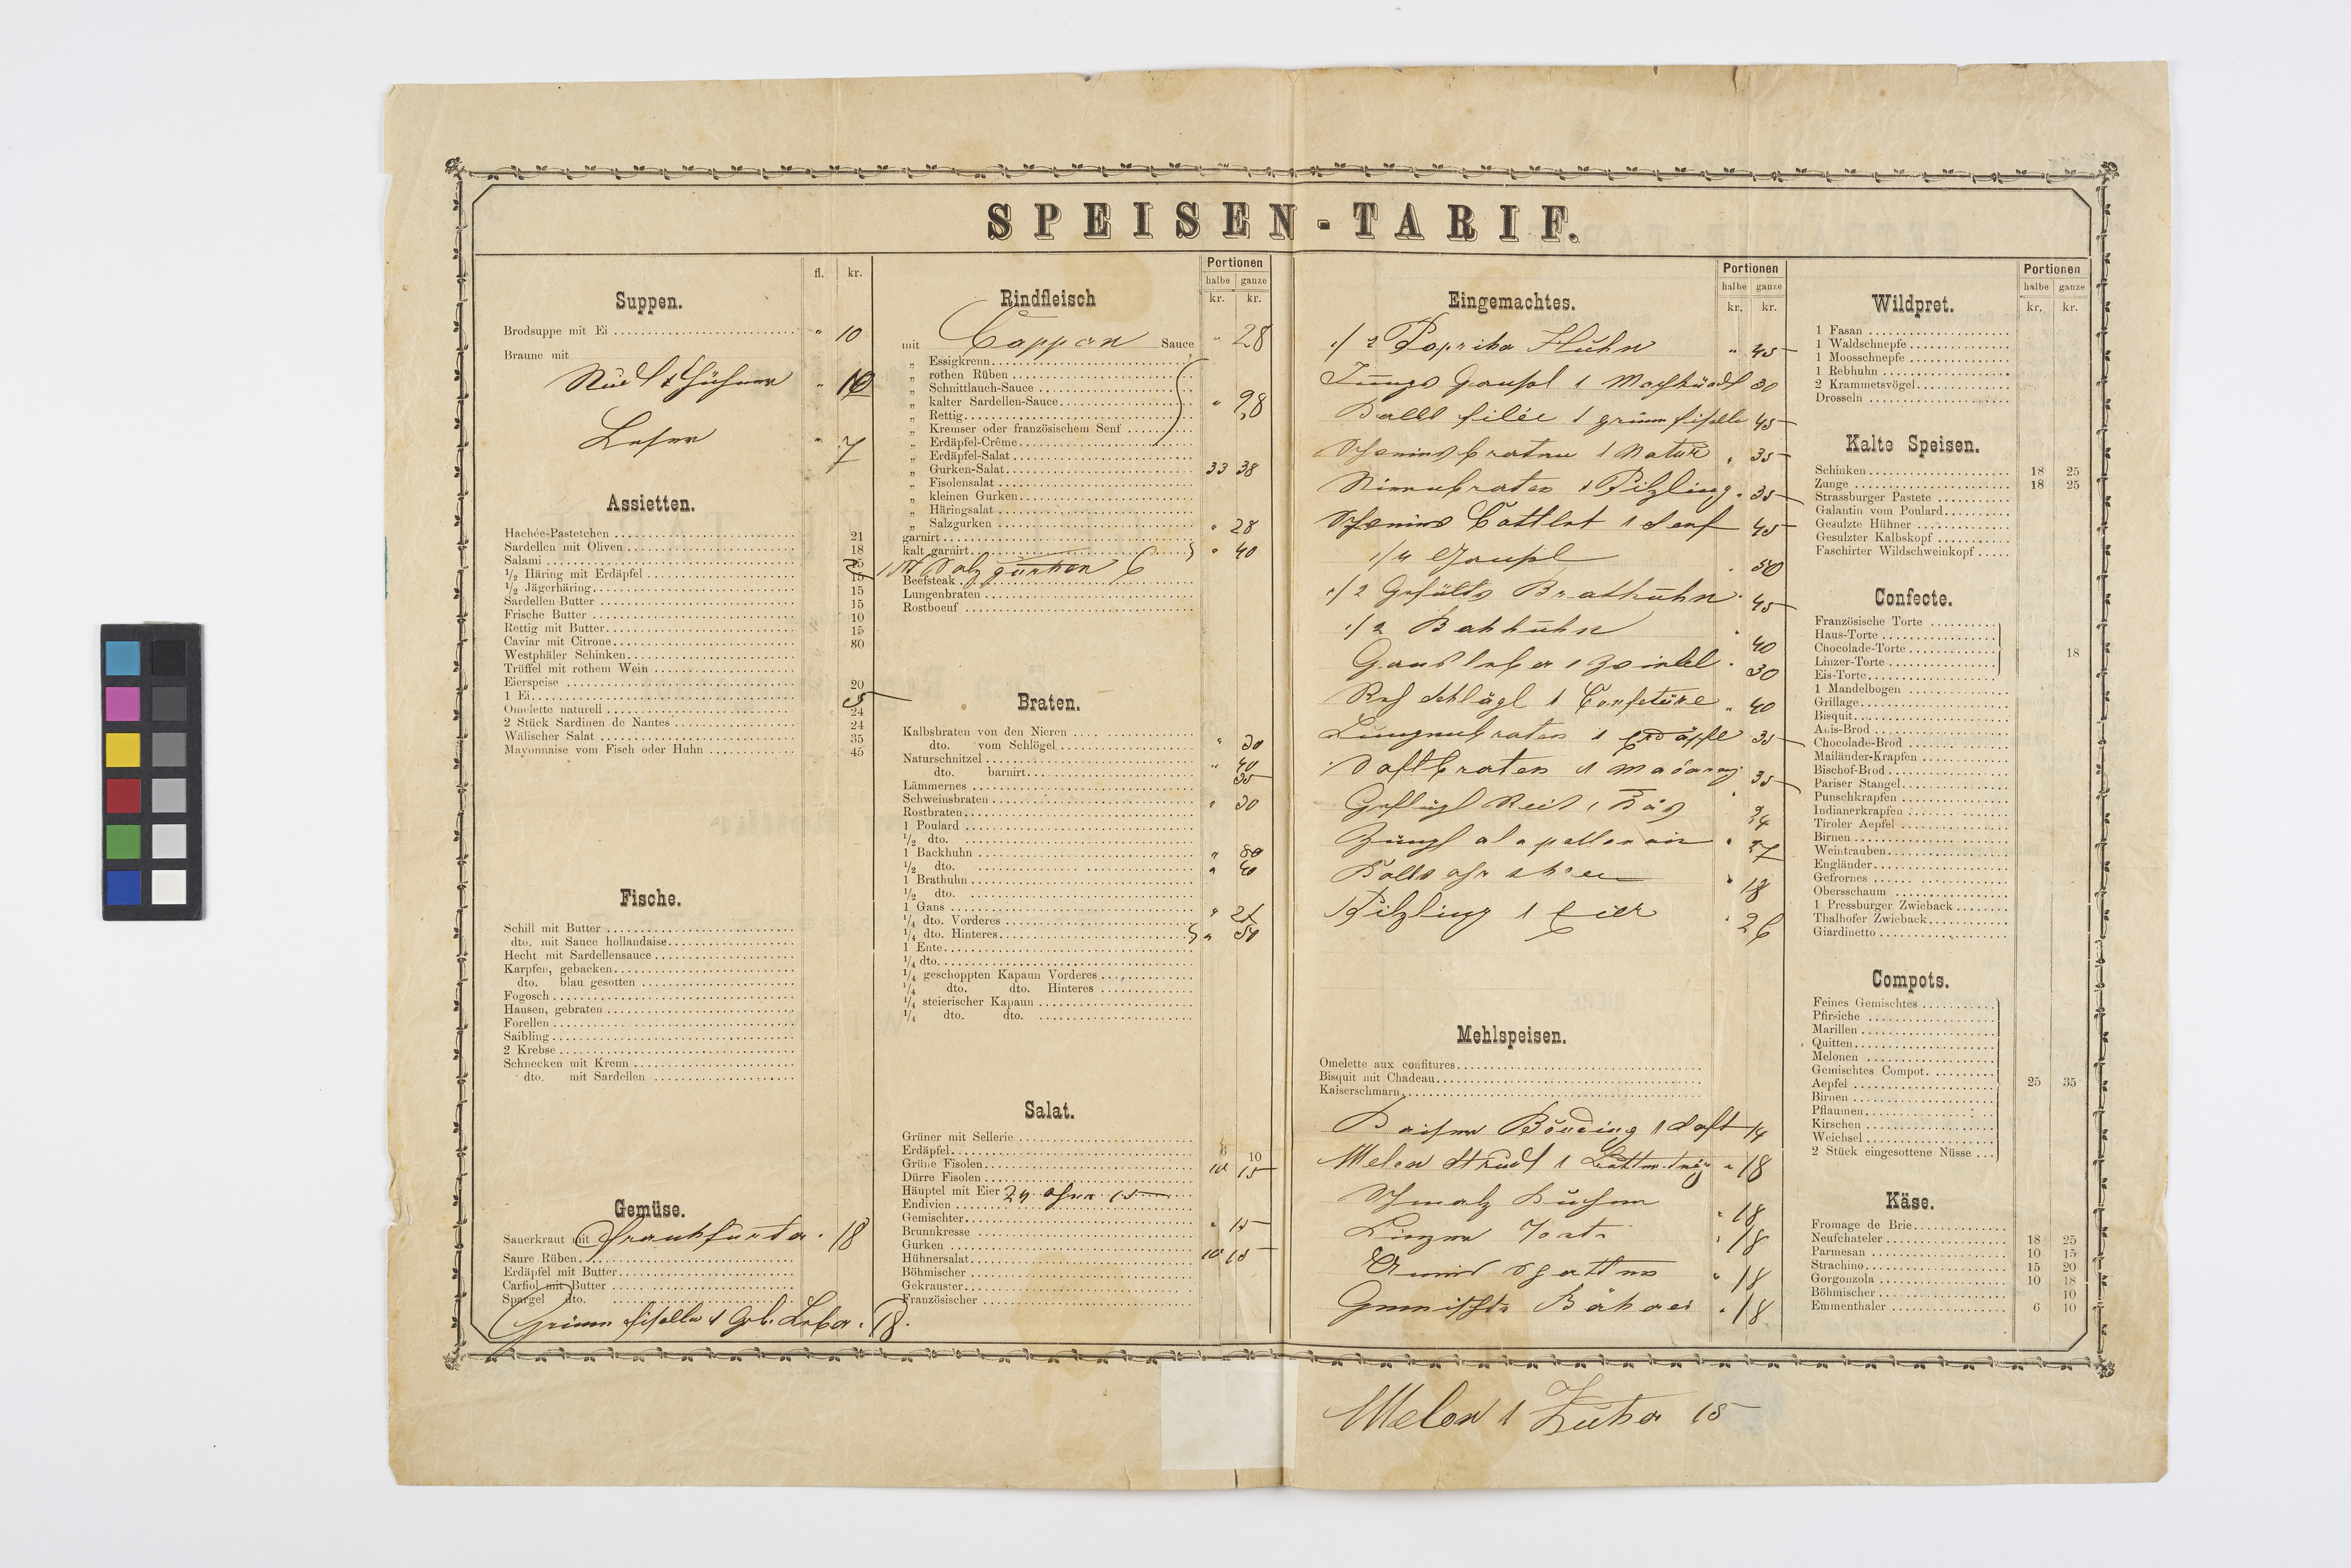 SPEISEN-TARIF.
fl. kr.
Suppen.
Brodsuppe mit Ei " 10
Braune mit
Nudl & Hühner " 10
Leber " 7
Assietten.
Hachée-Pastetchen 21
Sardellen mit Oliven 18
Salami 15
1/2 Häring mit Erdäpfel 15
1/2 Jägerhäring 15
Sardellen-Butter 15
Frische Butter 10
Rettig mit Butter 15
Caviar mit Citrone 80
Westphäler Schinken
Trüffel mit rothem Wein
Eierspeise 20
1 Ei 5
Omelette naturell 24
2 Stück Sardinen de Nantes 24
Wälischer Salat 35
Mayonnaise vom Fisch oder Huhn 45
Fische.
Schill mit Butter
dto. mit Sauce hollandaise
Hecht mit Sardellensauce
Karpfen, gebacken
dto. blau gesotten
Fogosch
Hausen, gebraten
Forellen
Saibling
2 Krebse
Schnecken mit Krenn
dto. mit Sardellen
Gemüse.
Sauerkraut mit Frankfurter 18
Saure Rüben
Erdäpfel mit Butter
Carfiol mit Butter
Spargel dto.
Grüne Fisolen & Leber 18.
Portionen
halbe ganze
kr. kr.
Rindfleisch
mit Cappern Sauce " 28
" Essigkrenn
" rothen Rüben
" Schnittlauch-Sauce
" kalter Sardellen-Sauce " 28
" Rettig
" Kremser oder französischem Senf
" Erdäpfel-Crême
" Erdäpfel-Salat
" Gurken-Salat 33 38
" Fisolensalat
" kleinen Gurken
" Häringsalat
" Salzgurken " 28
garnirt
kalt garnirt " 40
1 St Salzgurken 6
Beefsteak
Lungenbraten
Rostboeuf
Braten.
Kalbsbraten von den Nieren
dto. vom Schlögel " 30
Naturschnitzel " 40
dto. barnirt 35
Lämmernes
Schweinsbraten " 30
Rostbraten
1 Poulard
1/2 dto.
1 Backhuhn " 80
1/2 dto. " 40
1 Brathuhn
1/2 dto.
1 Gans
1/4 dto. Vorderes
1/4 dto. Hinteres " 50
1 Ente
1/4 dto.
1/4 geschoppten Kapaun Vorderes
1/4 dto. dto. Hinteres
1/4 steierischer Kapaun
1/4 dto. dto.
Salat.
Grüner mit Sellerie
Erdäpfel 8 10
Grüne Fisolen 10 15
Dürre Fisolen
Häuptel mit Eier 24 ohne 15
Endivien
Gemischter " 15
Brunnkresse
Gurken
Hühnersalat 10 15
Böhmischer
Gekrauster
Französischer
Portionen
halbe ganze
kr. kr.
Eingemachtes.
1/2 Paprika Huhn " 45
Junges Gansel 30
filée & grüne Fisolen 45
Schweinsbraten & Natur " 35
Nierenbraten & Pilzling " 35
Schweins Cottlet & Senf 45
1/4 Gansel 50
1/2 Gefülts Brathuhn 45
1/2 Bakhuhn 40
Gansleber & Zwiebel 30
Reh Schlägl & Confetüre 40
Lungenbraten & Erdäpfel 35
Saftbraten & Macaroni 35
Geflügel Reis & Käs 24
27
18
Pilzling & Eier 26
Mehlspeisen.
Omelette aux confitures
Bisquit mit Chadeau
Kaiserschmarn
Kaiser Pouding & Saft 14
Melon Strudl & 18
Schmalz Kuchen " 18
Linzer Torte " 18
" 18
Gemischte " 18
Portionen
halbe ganze
kr. kr.
Wildpret.
1 Fasan
1 Waldschnepfe
1 Moosschnepfe
1 Rebhuhn
2 Krammetsvögel
Drosseln
Kalte Speisen.
Schinken 18 25
Zunge 18 25
Strassburger Pastete
Galantin vom Poulard
Gesulzte Hühner
Gesulzter Kalbskopf
Faschirter Wildschweinkopf
Confecte.
Französische Torte
Haus-Torte
Chocolade-Torte 18
Linzer-Torte
Eis-Torte
1 Mandelbogen
Grillage
Bisquit
Anis-Brod
Chocolade-Brod
Mailänder-Krapfen
Bischof-Brod
Pariser Stangel
Punschkrapfen
Indianerkrapfen
Tiroler Aepfel
Birnen
Weintrauben
Engländer
Gefrornes
Obersschaum
1 Pressburger Zwieback
Thalhofer Zwieback
Giardinetto
Compots.
Feines Gemischtes
Pfirsiche
Marillen
Quitten
Melonen
Gemischtes Compot
Aepfel 25 35
Birnen
Pflaumen
Kirschen
Weichsel
2 Stück eingesottene Nüsse
Käse.
Fromage de Brie
Neufchateler 18 25
Parmesan 10 15
Strachino 15 20
Gorgonzola 10 18
Böhmischer 10
Emmenthaler 6 10
Melon & Zuker 15